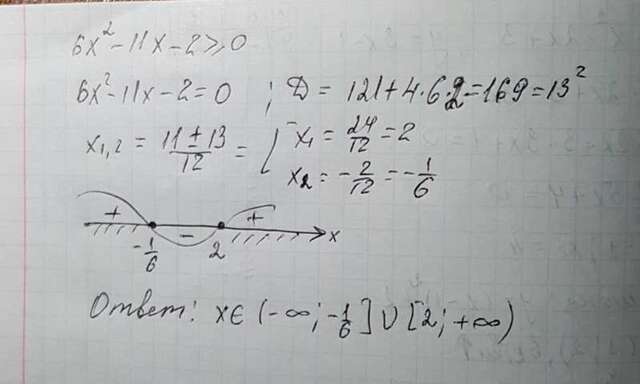 6x² - 11x - 2 ≥ 0
6x² - 11x - 2 = 0 ; D = 121 + 4·6·2 = 169 = 13²
x₁,₂ = (11 ± 13)/12 = [ x₁ = 24/12 = 2
x₂ = -2/12 = -1/6
+ - + x
-1/6 2
Ответ: x ∈ (-∞; -1/6] ∪ [2; +∞)